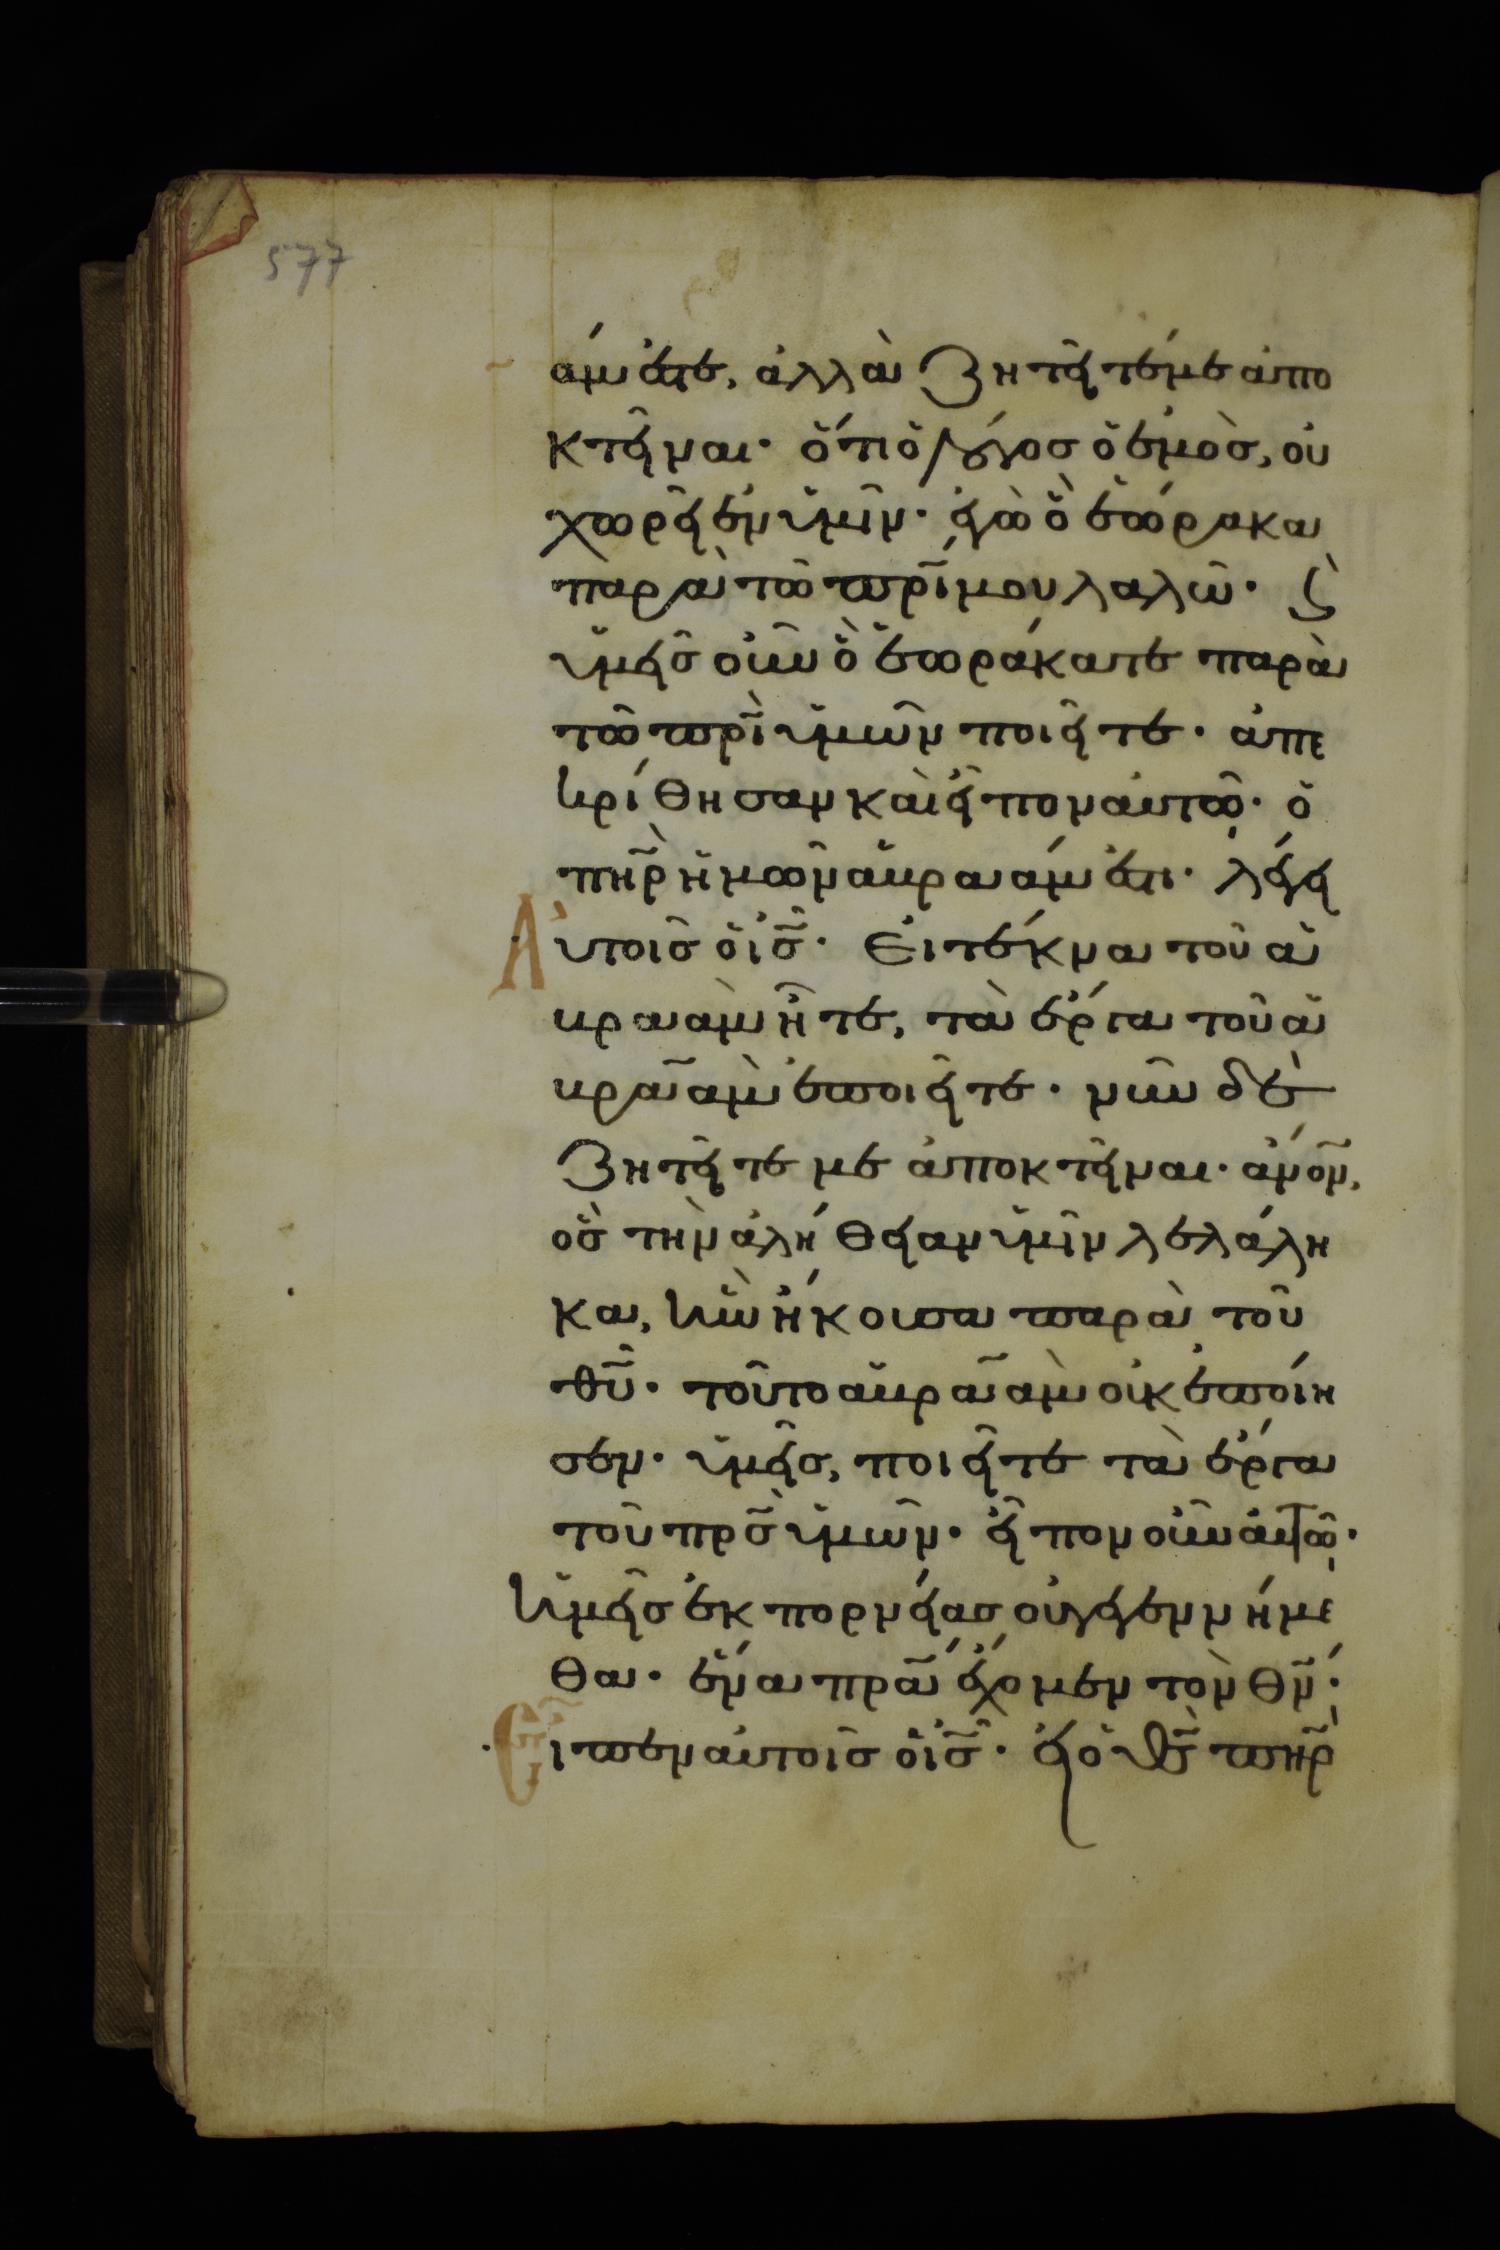 577
άμ ἐστε, ἀλλὰ ζητεῖτέ με ἀπο
κτεῖναι· ὅτι ὁ λόγος ὁ ἐμὸς, οὐ
χωρεῖ ἐν ὑμῖν· ἐγὼ ὃ ἑώρακα
παρὰ τῶ πρ̅ί μου λαλῶ· ϛ̀
ὑμεῖς οὖν ὃ ἑωράκατε παρὰ
τῶ πρ̅ὶ ὑμῶν ποιεῖτε· ἀπε
κρίθησαν καὶ εἶπον αὐτῶ· ὁ
πη̅ρ ἡμῶν ἀβραάμ ἐστι· λέγει
Αὐτοῖς ὁ ι̅ς̅· Εἰ τέκνα τοῦ ἀ
βραὰμ ἦτε, τὰ ἔργα τοῦ ἀ
βραὰμ ἐποιεῖτε· νῦν δὲ
ζητεῖτέ με ἀποκτεῖναι· ἄν̅ο̅ν̅,
ὃς τὴν ἀλήθειαν ὑμῖν λελάλη
κα, ἣν ἤκουσα παρὰ τοῦ
θ̅υ̅· τοῦτο ἀβραὰμ οὐκ ἐποίη
σεν· ὑμεῖς, ποιεῖτε τὰ ἔργα
τοῦ π̅ρ̅ς̅ ὑμῶν· εἶπον οὖν αὐτῶ·
Ἡμεῖς ἐκ πορνείας οὐ γεγεννήμε
θα· ἕνα π̅ρ̅α̅ ἔχομεν τὸν θ̅ν̅·
Εἶπεν αὐτοῖς ὁ ι̅ς̅· εἰ ὁ θ̅ς̅ π̅η̅ρ̅